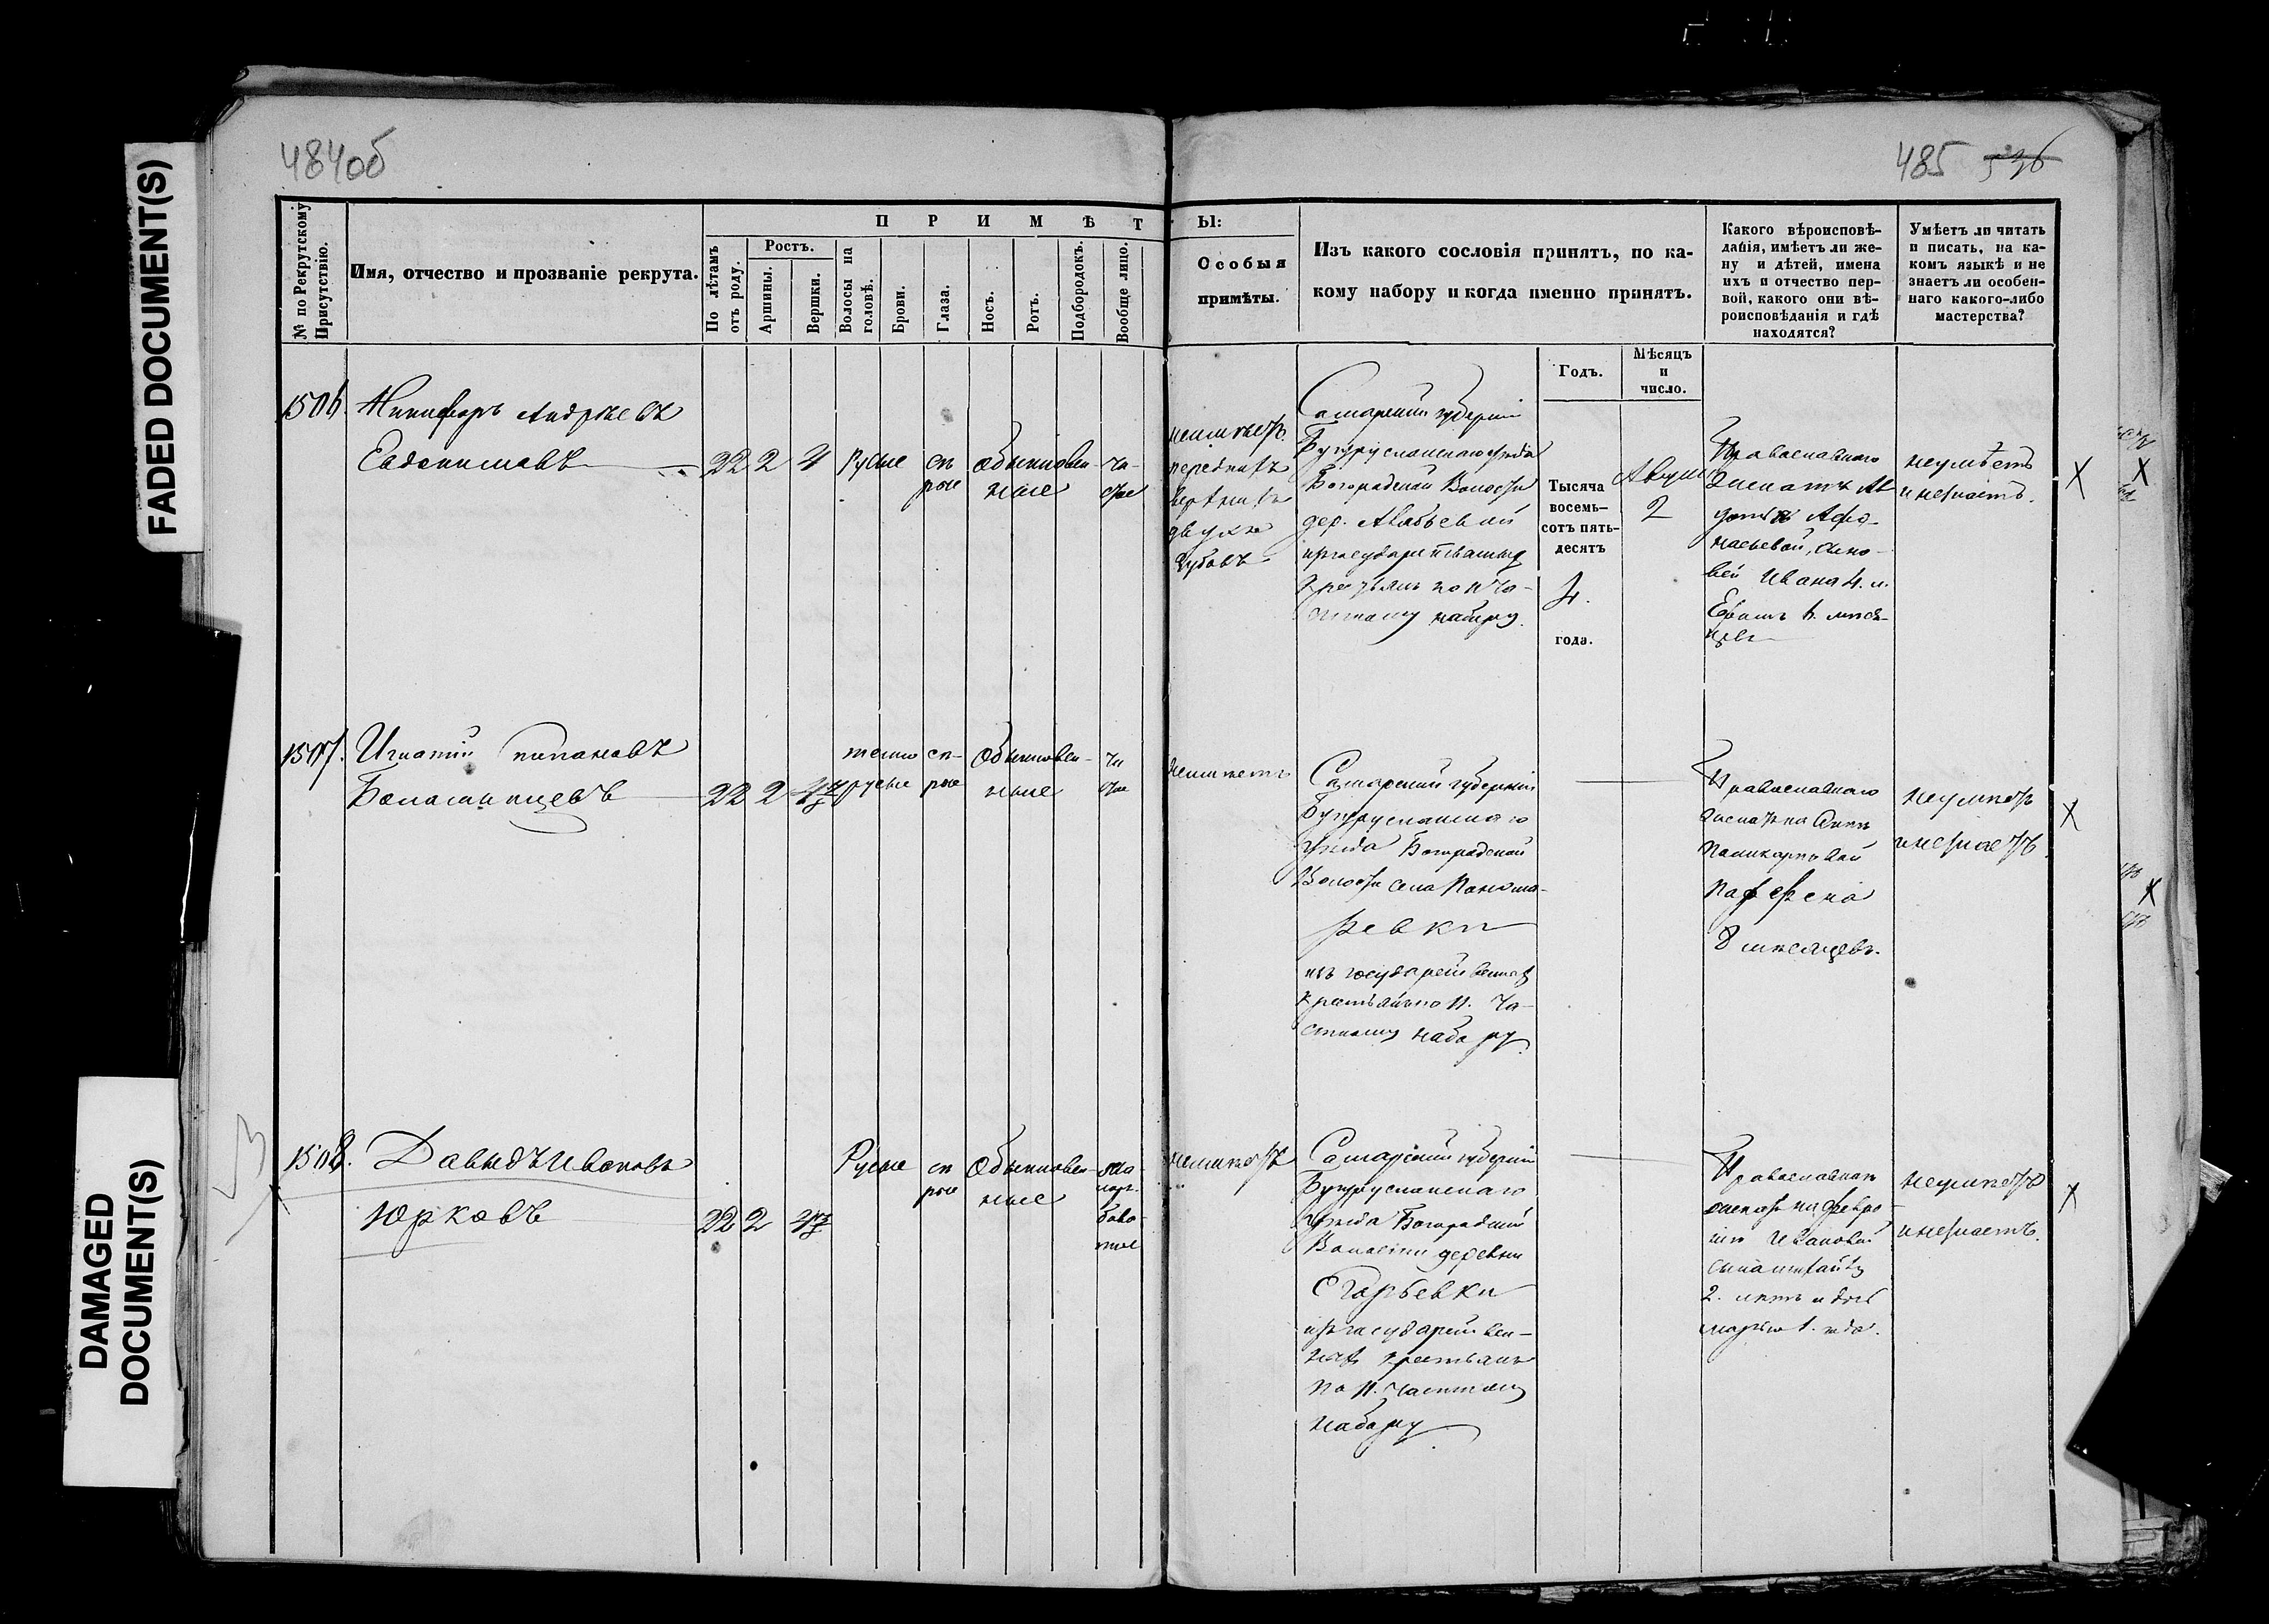 FADED DOCUMENT(S)
DAMAGED
DOCUMENT(S)
484об
485 536
№ по Рекрутскому
Присутствію.
Имя, отчество и прозваніе рекрута.
ПРИМѢТ
По лѣтамъ
отъ роду.
Ростъ.
Аршины.
Вершки.
Волосы на
головѣ.
Брови.
Глаза.
Носъ.
Ротъ.
Подбородокъ.
Вообще лицо.
Ы:
Особыя
примѣты.
Изъ какого сословія принятъ, по ка-
кому набору и когда именно принятъ.
Какого вѣроисповѣ-
данія, имѣетъ ли же-
ну и дѣтей, имена
ихъ и отчество пер-
вой, какого они вѣ-
роисповѣданія и гдѣ
находятся?
Умѣетъ ли читать
и писать, на ка-
комъ языкѣ и не
знаетъ ли особен-
наго какого-либо
мастерства?
Годъ.
Мѣсяцъ
и
число.
1506. Никифоръ Андреевъ
Евдокимовъ
22 2 4
Русые
сѣ
рые
обыкновен-
ные
чи-
стое
неимѣетъ
переднихъ
верхнихъ
двухъ
зубовъ
Самарской губерніи
Бугурусланскаго уѣзда
Богородской Волости
дер.
изъ государственныхъ
крестьянъ по 11 ча-
стному набору.
Тысяча
восемь-
сотъ пять-
десятъ
4.
года.
Августа
2
Православнаго
женатъ Ав
дотьѣ Афо-
насьевой, сыно-
вей Ивана 4. и.
Ефимъ 6. мѣся-
цевъ
неумѣетъ
и незнаетъ.
X
X
1507. Игнатій
22 2
темно
русые
сѣ-
рые
Обыкновен-
ные
чи
стое
неимѣетъ
Самарской губерніи
Бугурусланскаго
уѣзда Богородской
Волости села Понома-
ревки
изъ государственныхъ
крестьянъ по 11. ча-
стному набору.
Православнаго
женатъ на Аннѣ
Поликарповой
8 мѣсяцевъ.
неумѣетъ
и незнаетъ.
X
X
1508. Давыдъ Ивановъ
Юрковъ
22 2
Русые
сѣ
рые
Обыкновен-
ные
неимѣетъ
Самарской губерніи
Бугурусланскаго
уѣзда Богородской
Волости деревни
Егорьевки
изъ государствен-
ныхъ крестьянъ
по 11. частному
набору
Православнаго
женатъ на Февро-
ніи Ивановой
сына
2. лѣтъ и дочь
Марью 1. года.
неумѣетъ
и незнаетъ.
X